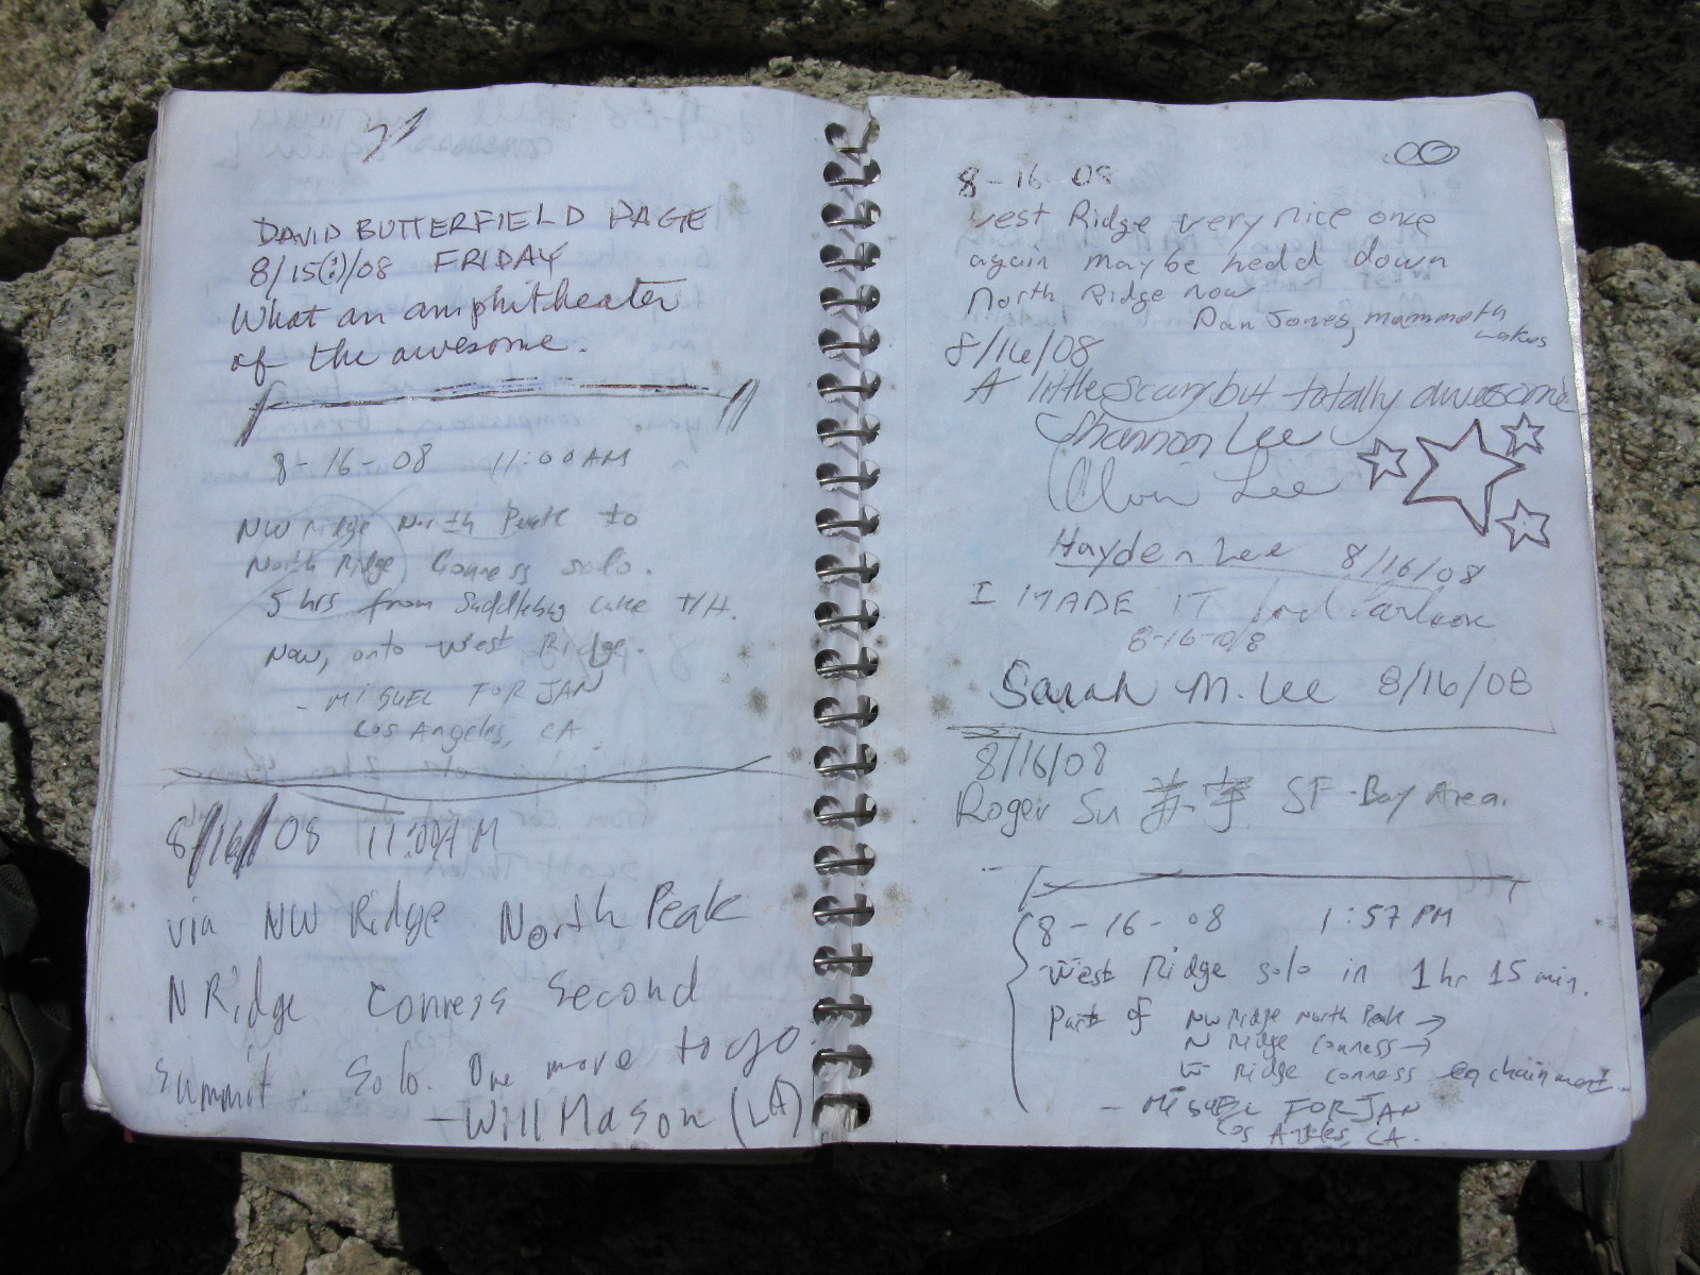 DAVID BUTTERFIELD PAGE
8/15(?)/08 FRIDAY
What an amphitheater
of the awesome.
8-16-08 11:00AM
NW Ridge North Peak to
North Ridge Conness solo.
5 hrs from Saddlebag Lake T/H.
Now, onto West Ridge.
- MIGUEL FORJAN
Los Angeles, CA.
8/16/08 11:00AM
via NW Ridge North Peak
N Ridge Conness Second
Summit. Solo. One more to go.
- Will Mason (LA)
8-16-08
West Ridge very nice once
again maybe hedd down
North Ridge Now
Dan Jones, mammoth
Lakes
8/16/08
A little scary but totally awesome
Shannon Lee
Lee
Hayden Lee 8/16/08
I MADE IT
8-16-08
Sarah M. Lee 8/16/08
8/16/08
Roger Su SF-Bay Area.
8-16-08 1:57 PM
West Ridge solo in 1 hr 15 min.
Part of NW Ridge North Peak →
N Ridge Conness →
W Ridge Conness enchainment.
- MIGUEL FORJAN
Los Angeles, CA.